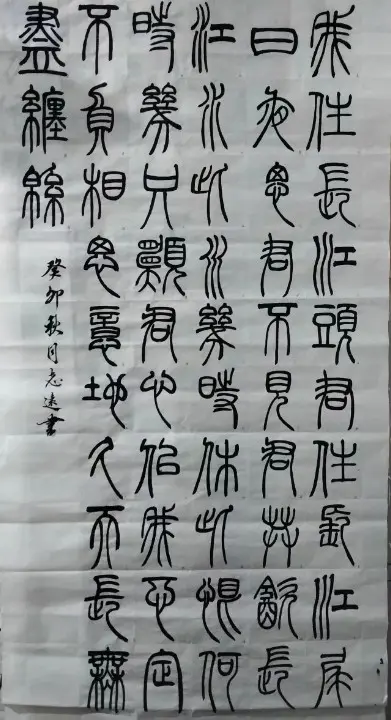 我住長江頭君住長江尾
日夜思君不見君共飲長
江水此水幾時休此恨何
時幾只願君心似我心定
不負相思意地久天長無
盡纏綿
癸卯秋月志遠書